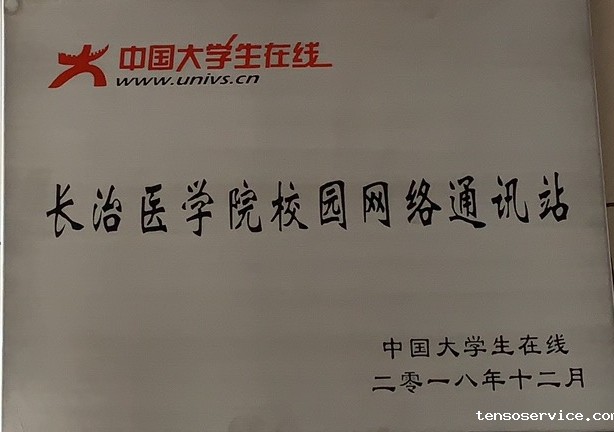 中国大学生在线
www.univs.cn
长治医学院校园网络通讯站
中国大学生在线
二零一八年十二月
tensoservice.com